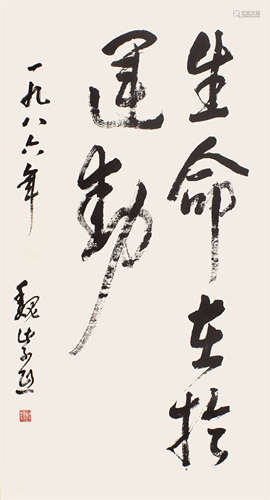 生命在於
運動
一九八六年
魏紫熙